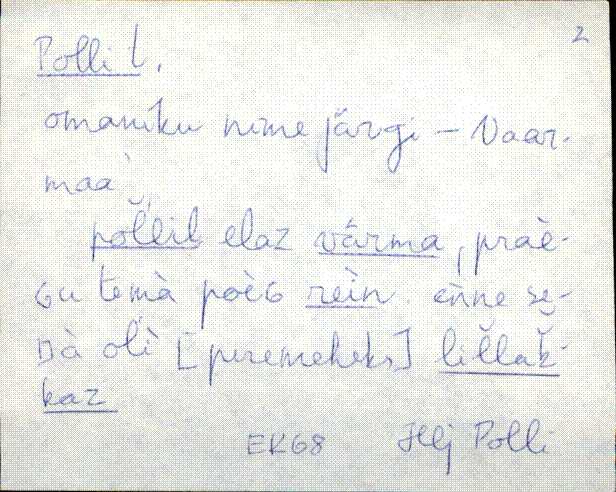 2
Polli t.
omaniku nime järgi – Vaar-
maa
pol̆l̆il elaz vārma, praè-
Gu temà poèG reìn. eǹne se-
Dà olì [peremeheks] lil̆l̆ak̆-
kaz
EK68 Hlj Polli